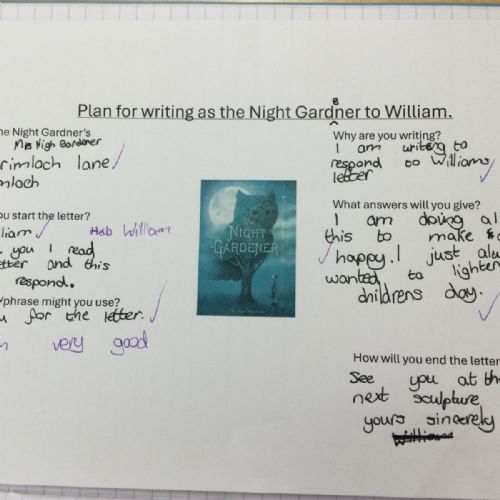 Plan for writing as the Night Gardner to William.
e
he Night Gardner's
Mrs Nigh Gardener
rimloch lane
mloch
ou start the letter?
lliam
William
you I read
etter and this
respond.
/phrase might you use?
u for the letter.
very good
The
NIGHT
GARDENER
The Fan Brothers
Why are you writing?
I am writing to
respond to Williams
letter
What answers will you give?
I am doing al
this to make
happy. I just alw
wanted to lighten
childrens day.
How will you end the letter
See you at th
next sculpture
yours sincerely